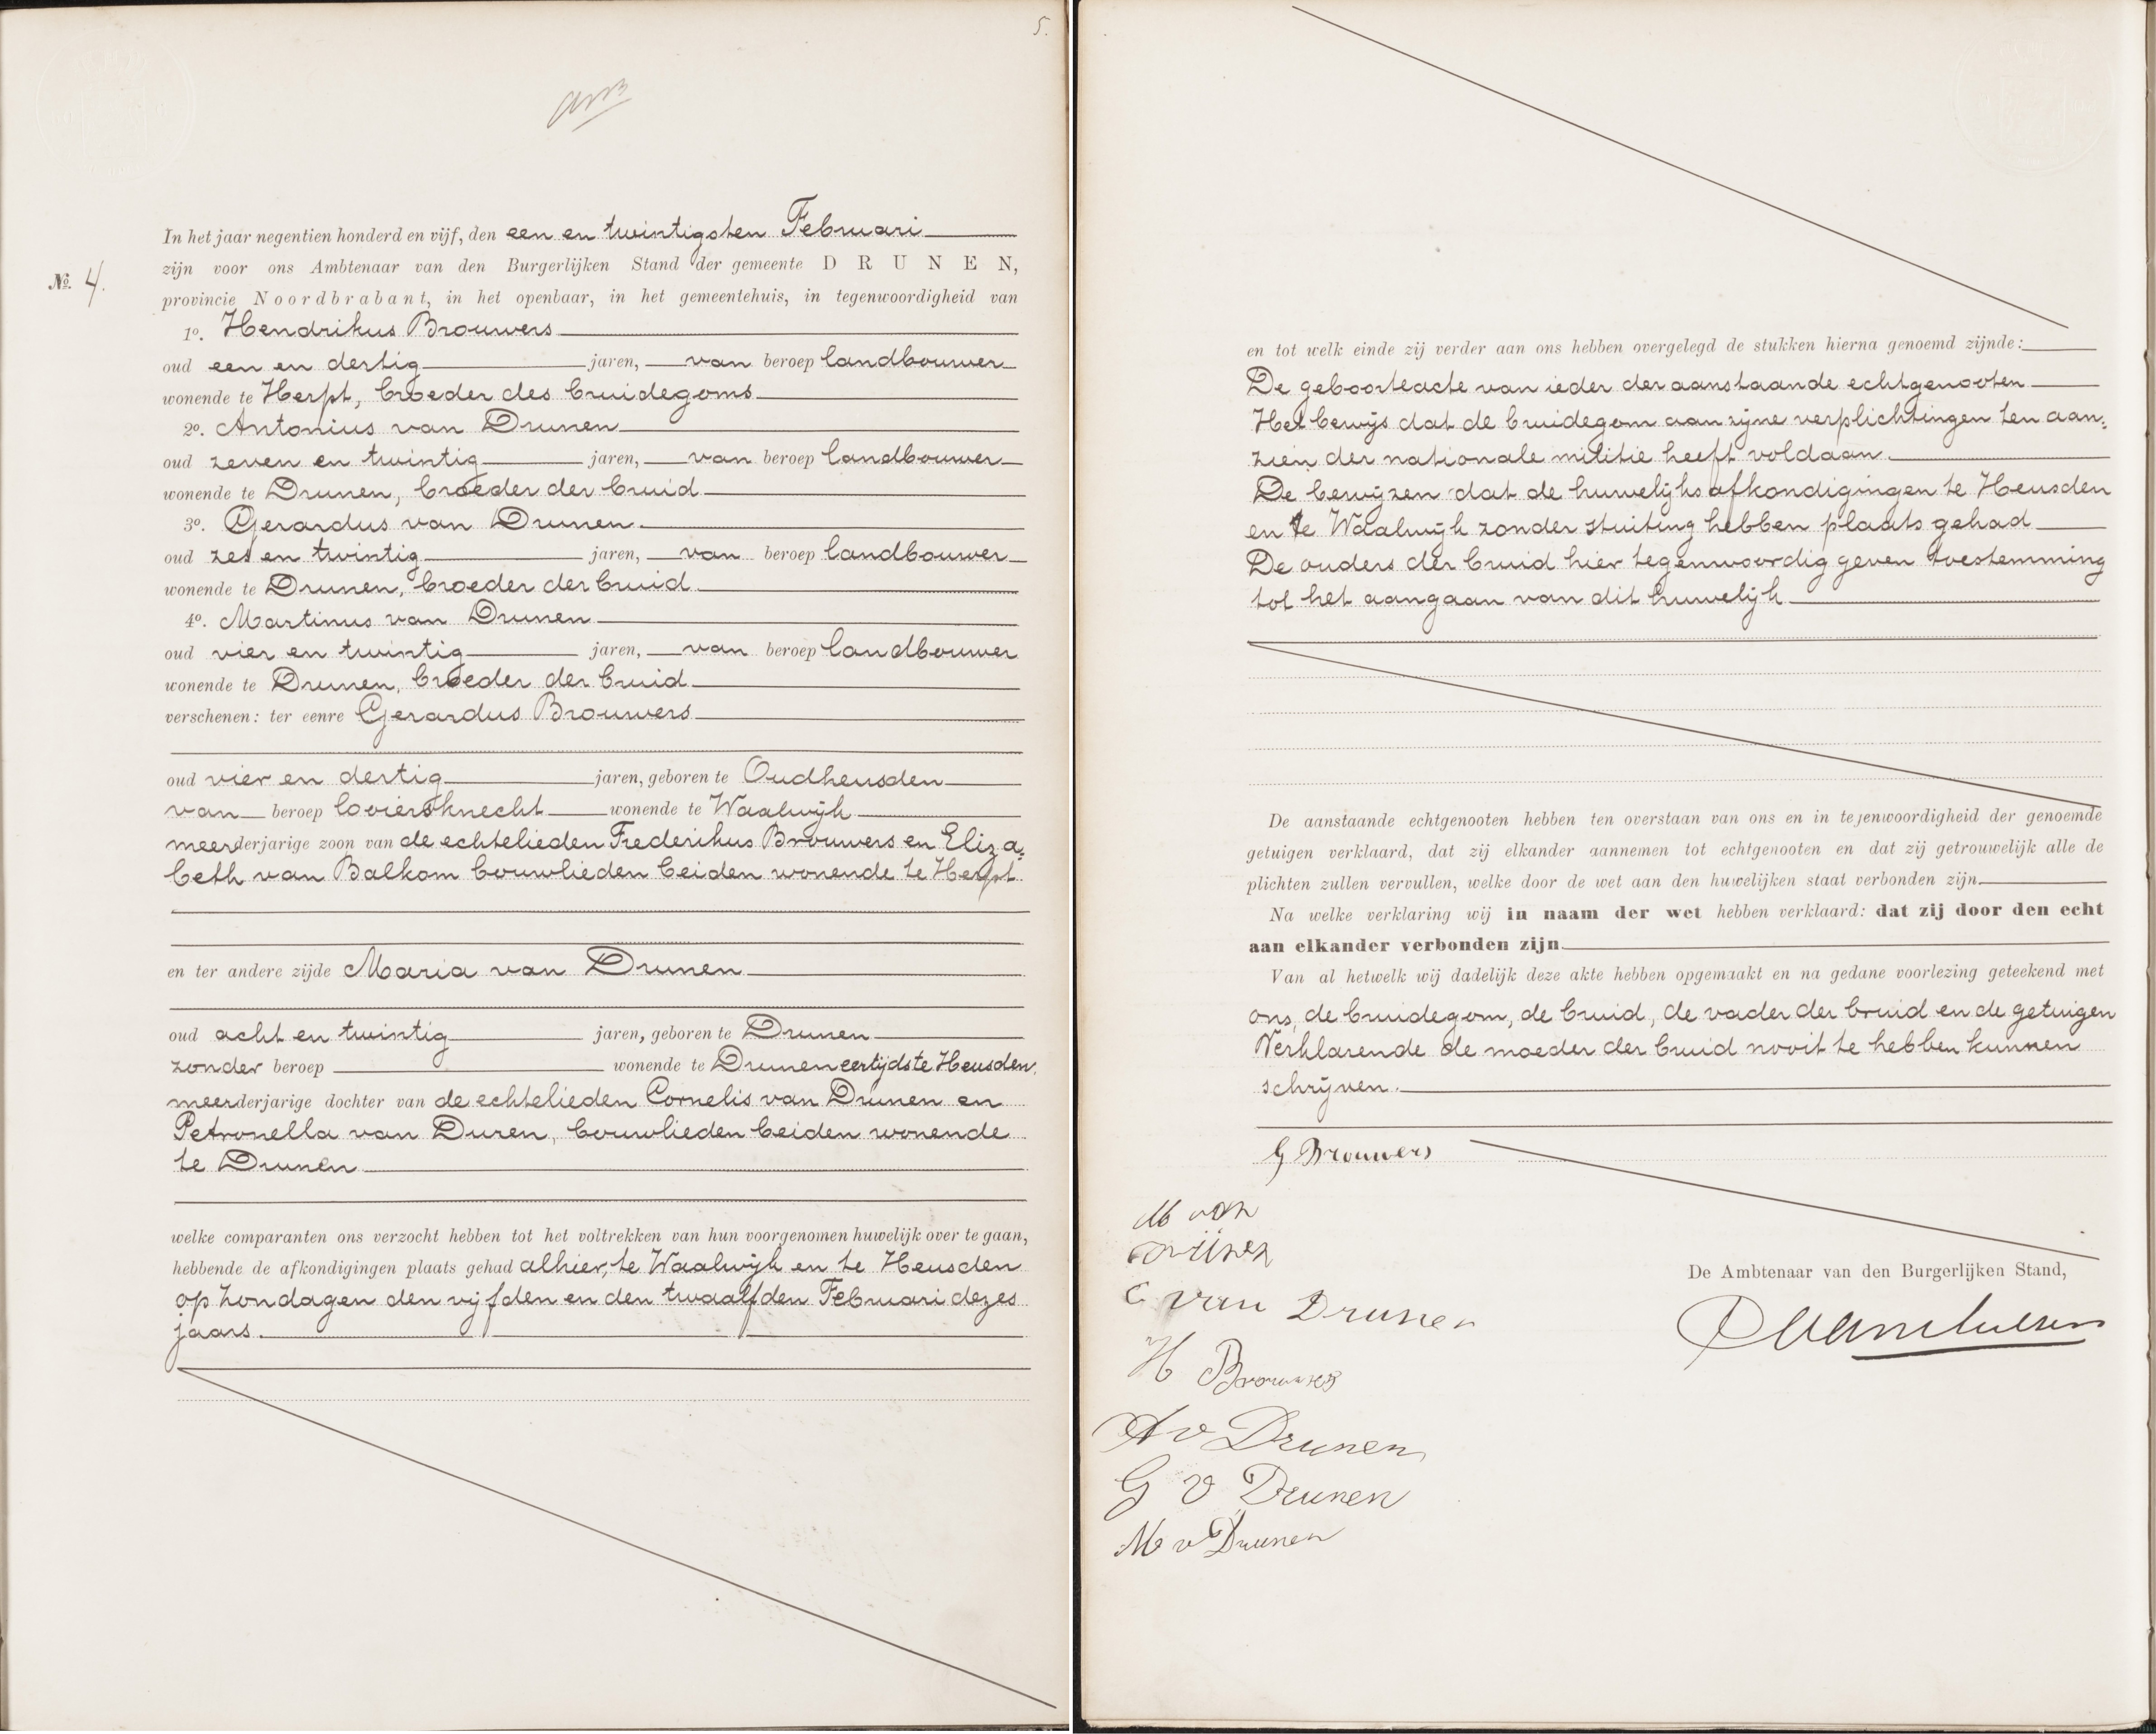 5.
In het jaar negentien honderd en vijf, den een en twintigsten Februari
zijn voor ons Ambtenaar van den Burgerlijken Stand der gemeente DRUNEN,
No. 4.
provincie Noordbrabant, in het openbaar, in het gemeentehuis, in tegenwoordigheid van
1o. Hendrikus Brouwers
oud een en dertig jaren, van beroep landbouwer
wonende te Herpt, broeder des bruidegoms
2o. Antonius van Drunen
oud zeven en twintig jaren, van beroep landbouwer
wonende te Drunen, broeder der bruid
3o. Gerardus van Drunen
oud zes en twintig jaren, van beroep landbouwer
wonende te Drunen, broeder der bruid
4o. Martinus van Drunen
oud vier en twintig jaren, van beroep landbouwer
wonende te Drunen, broeder der bruid
verschenen: ter eenre Gerardus Brouwers
oud vier en dertig jaren, geboren te Oudheusden
van beroep looiersknecht wonende te Waalwijk
meerderjarige zoon van de echtelieden Frederikus Brouwers en Eliza=
beth van Balkom bouwlieden beiden wonende te Herpt
en ter andere zijde Maria van Drunen
oud acht en twintig jaren, geboren te Drunen
zonder beroep wonende te Drunen eertijds te Heusden,
meerderjarige dochter van de echtelieden Cornelis van Drunen en
Petronella van Duren, bouwlieden beiden wonende
te Drunen
welke comparanten ons verzocht hebben tot het voltrekken van hun voorgenomen huwelijk over te gaan,
hebbende de afkondigingen plaats gehad alhier, te Waalwijk en te Heusden
op Zondagen den vijfden en den twaalfden Februari dezes
jaars.
en tot welk einde zij verder aan ons hebben overgelegd de stukken hierna genoemd zijnde:
De geboorteacte van ieder der aanstaande echtgenooten
Het bewijs dat de bruidegom aan zijne verplichtingen ten aan=
zien der nationale militie heeft voldaan.
De bewijzen dat de huwelijks afkondigingen te Heusden
en te Waalwijk zonder stuiting hebben plaats gehad
De ouders der bruid hier tegenwoordig geven toestemming
tot het aangaan van dit huwelijk
De aanstaande echtgenooten hebben ten overstaan van ons en in tegenwoordigheid der genoemde
getuigen verklaard, dat zij elkander aannemen tot echtgenooten en dat zij getrouwelijk alle de
plichten zullen vervullen, welke door de wet aan den huwelijken staat verbonden zijn.
Na welke verklaring wij in naam der wet hebben verklaard: dat zij door den echt
aan elkander verbonden zijn.
Van al hetwelk wij dadelijk deze akte hebben opgemaakt en na gedane voorlezing geteekend met
ons, de bruidegom, de bruid, de vader der bruid en de getuigen
Verklarende de moeder der bruid nooit te hebben kunnen
schrijven.
G Brouwers
M van
C van Drunen
H Brouwers
A v Drunen
G v Drunen
M v Drunen
De Ambtenaar van den Burgerlijken Stand,